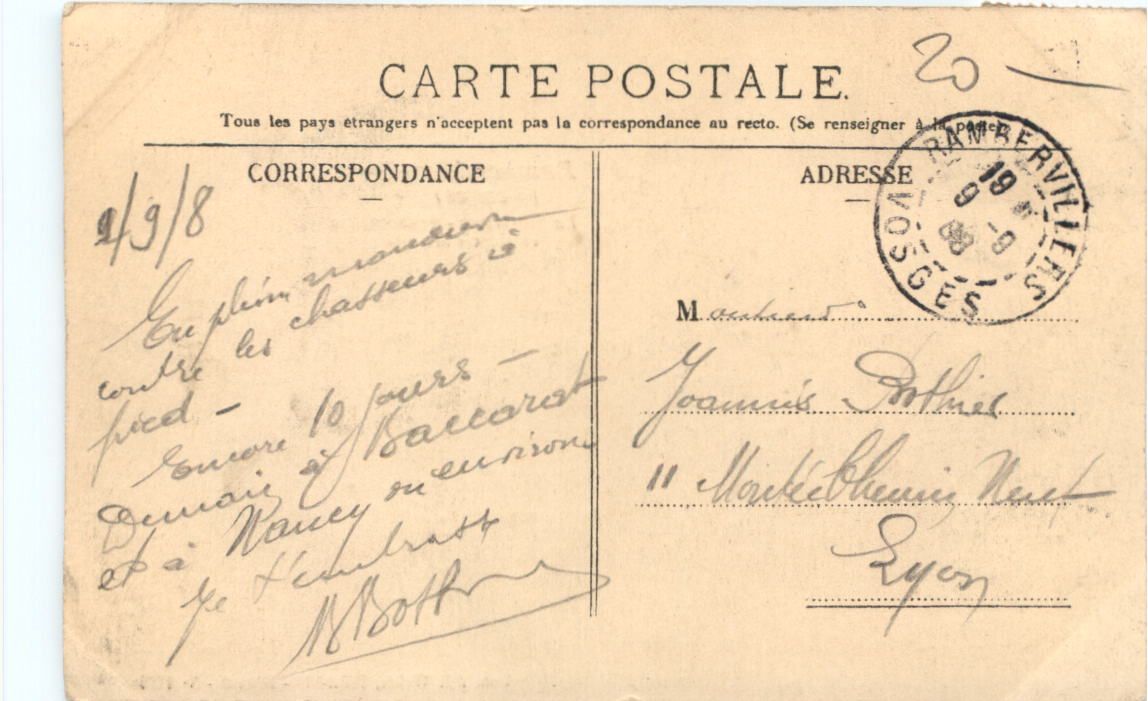 20 —
CARTE POSTALE.
Tous les pays étrangers n'acceptent pas la correspondance au recto. (Se renseigner à la poste)
CORRESPONDANCE
9/9/8
En plein manœuvre
contre les chasseurs à
pied -
Encore 10 jours -
Demain à Baccarat
et à Nancy ou environs
Je t'embrasse
ADRESSE
RAMBERVILLERS
VOSGES
19
9 - 9
08
M onsieur
Joannès
11 Montée Chemin Neuf
Lyon